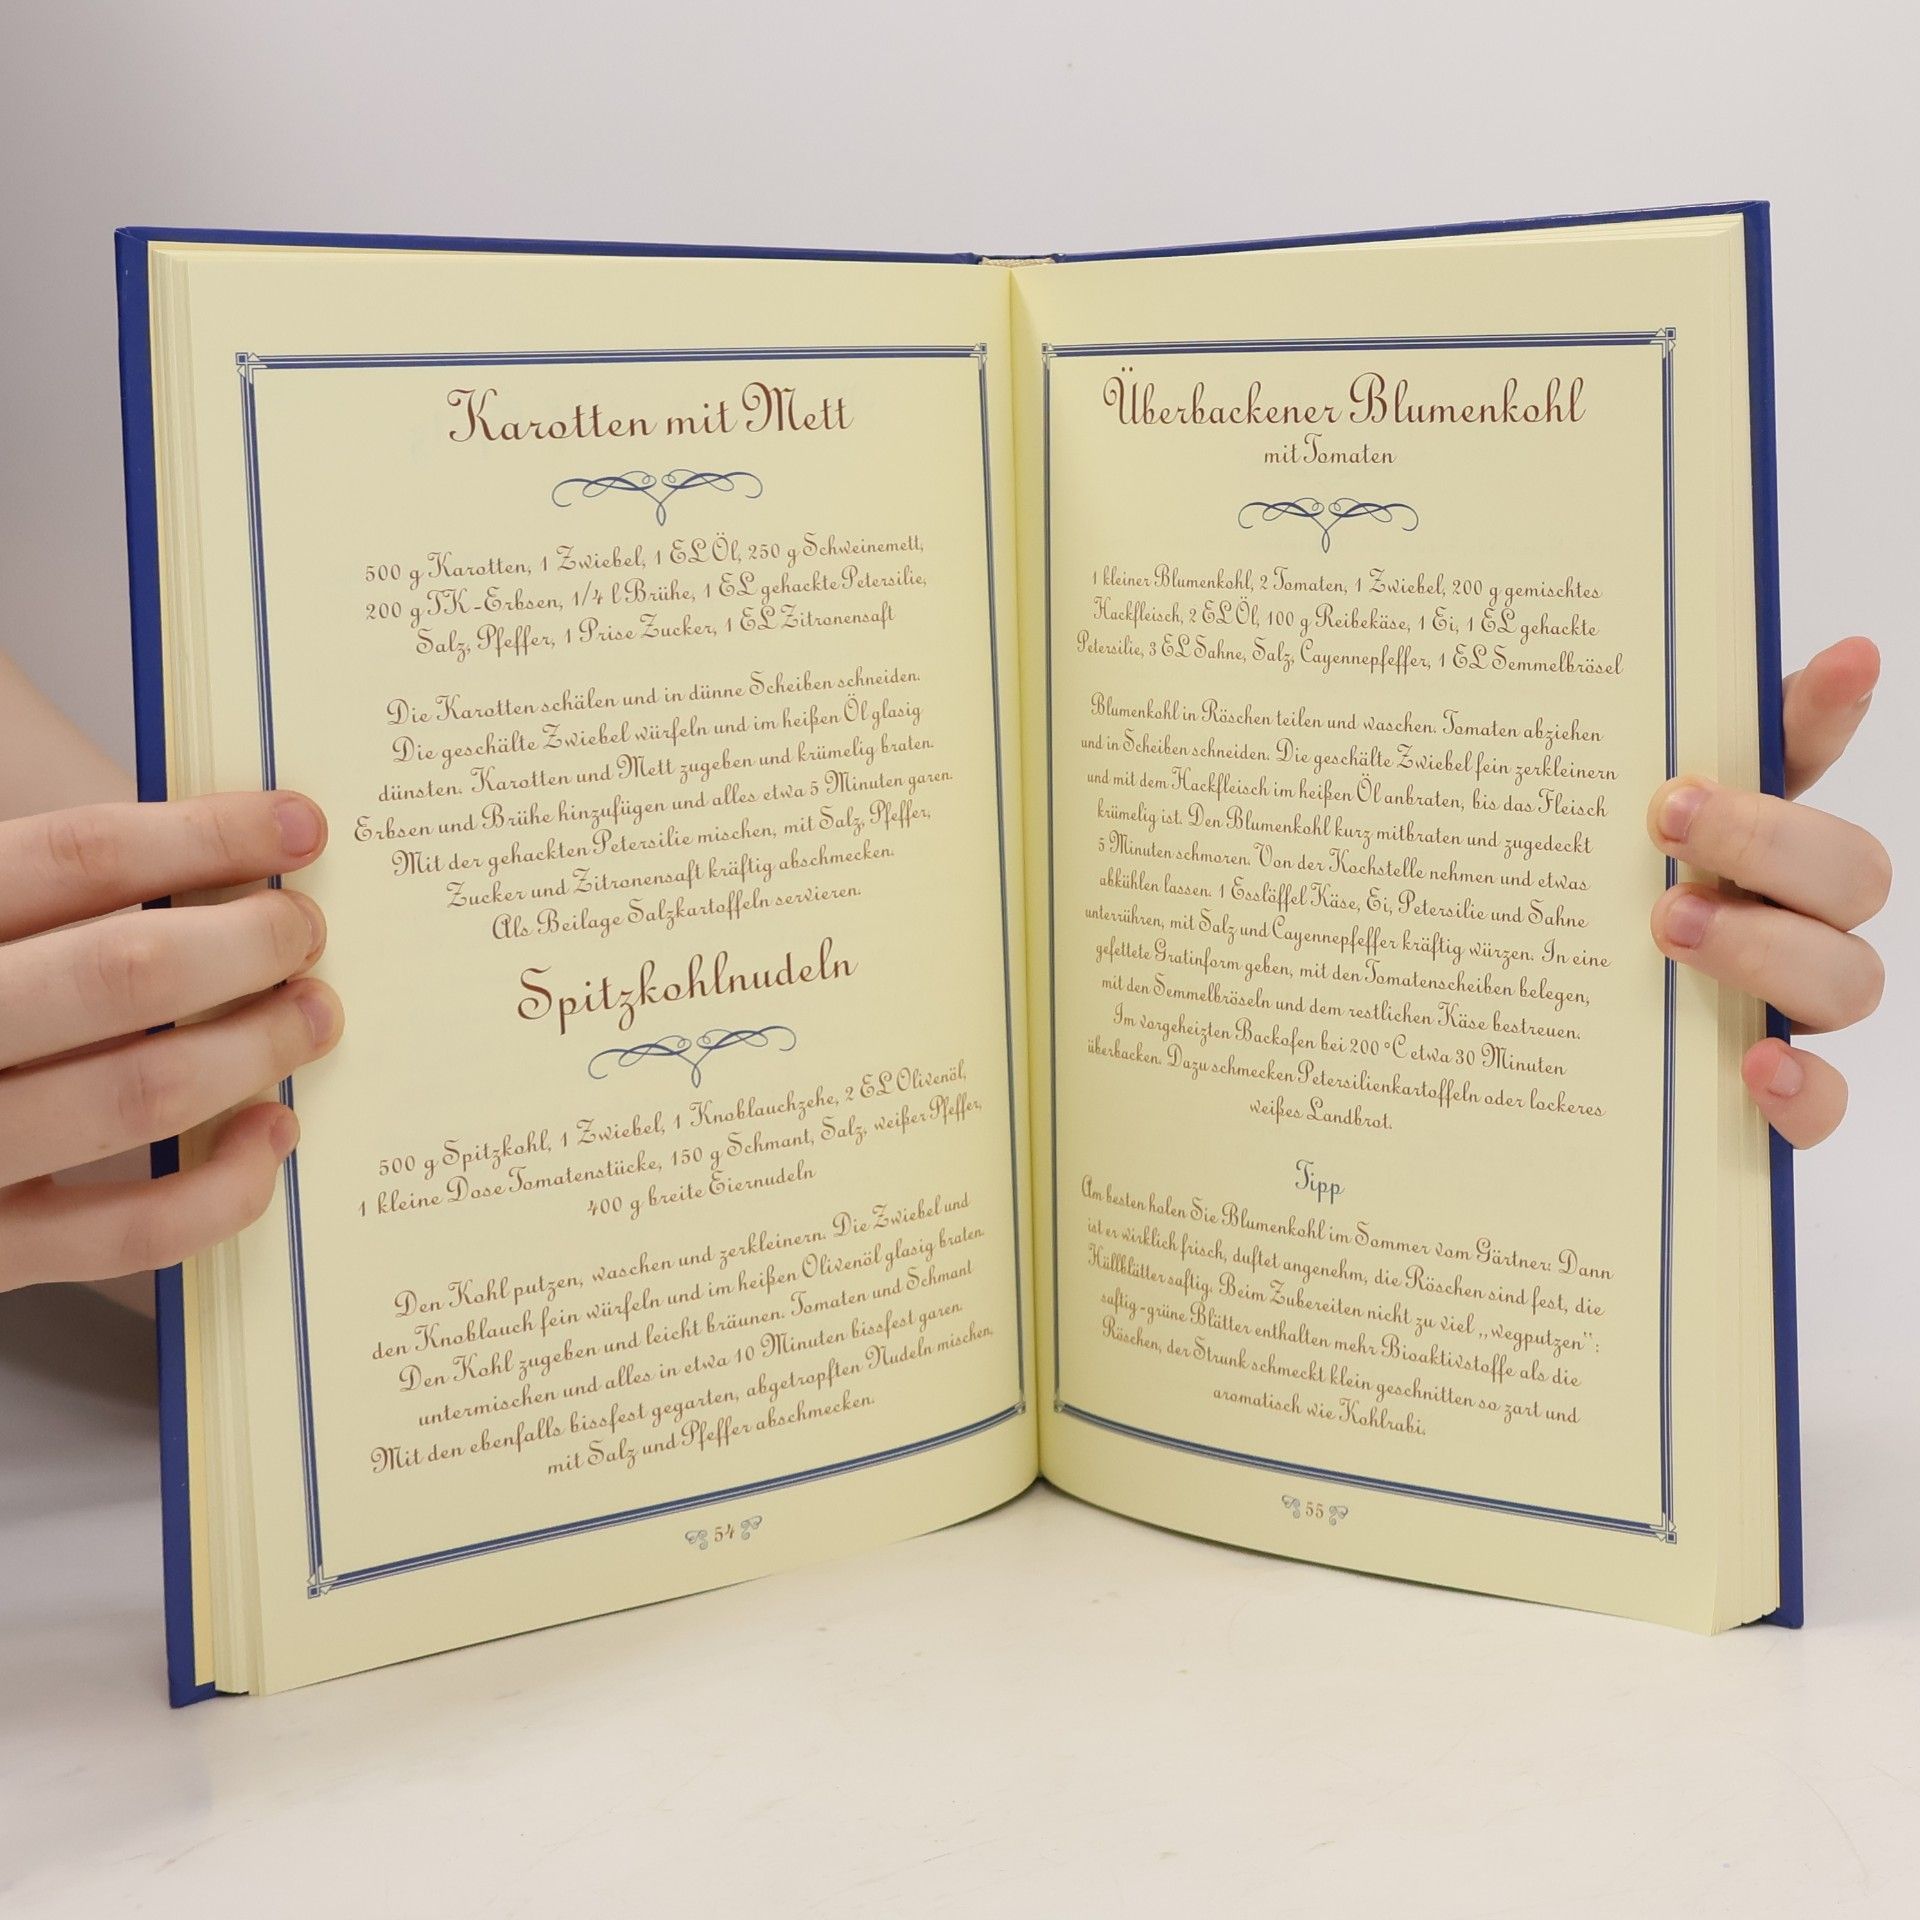 Karotten mit Mett
500 g Karotten, 1 Zwiebel, 1 EL Öl, 250 g Schweinemett,
200 g TK-Erbsen, 1/4 l Brühe, 1 EL gehackte Petersilie,
Salz, Pfeffer, 1 Prise Zucker, 1 EL Zitronensaft
Die Karotten schälen und in dünne Scheiben schneiden.
Die geschälte Zwiebel würfeln und im heißen Öl glasig
dünsten. Karotten und Mett zugeben und krümelig braten.
Erbsen und Brühe hinzufügen und alles etwa 5 Minuten garen.
Mit der gehackten Petersilie mischen, mit Salz, Pfeffer,
Zucker und Zitronensaft kräftig abschmecken.
Als Beilage Salzkartoffeln servieren.
Spitzkohlnudeln
500 g Spitzkohl, 1 Zwiebel, 1 Knoblauchzehe, 2 EL Olivenöl,
1 kleine Dose Tomatenstücke, 150 g Schmant, Salz, weißer Pfeffer,
400 g breite Eiernudeln
Den Kohl putzen, waschen und zerkleinern. Die Zwiebel und
den Knoblauch fein würfeln und im heißen Olivenöl glasig braten.
Den Kohl zugeben und leicht bräunen. Tomaten und Schmant
untermischen und alles in etwa 10 Minuten bissfest garen.
Mit den ebenfalls bissfest gegarten, abgetropften Nudeln mischen,
mit Salz und Pfeffer abschmecken.
54
Überbackener Blumenkohl
mit Tomaten
1 kleiner Blumenkohl, 2 Tomaten, 1 Zwiebel, 200 g gemischtes
Hackfleisch, 2 EL Öl, 100 g Reibekäse, 1 Ei, 1 EL gehackte
Petersilie, 3 EL Sahne, Salz, Cayennepfeffer, 1 EL Semmelbrösel
Blumenkohl in Röschen teilen und waschen. Tomaten abziehen
und in Scheiben schneiden. Die geschälte Zwiebel fein zerkleinern
und mit dem Hackfleisch im heißen Öl anbraten, bis das Fleisch
krümelig ist. Den Blumenkohl kurz mitbraten und zugedeckt
5 Minuten schmoren. Von der Kochstelle nehmen und etwas
abkühlen lassen. 1 Esslöffel Käse, Ei, Petersilie und Sahne
unterrühren, mit Salz und Cayennepfeffer kräftig würzen. In eine
gefettete Gratinform geben, mit den Tomatenscheiben belegen,
mit den Semmelbröseln und dem restlichen Käse bestreuen.
Im vorgeheizten Backofen bei 200 °C etwa 30 Minuten
überbacken. Dazu schmecken Petersilienkartoffeln oder lockeres
weißes Landbrot.
Tipp
Am besten holen Sie Blumenkohl im Sommer vom Gärtner: Dann
ist er wirklich frisch, duftet angenehm, die Röschen sind fest, die
Hüllblätter saftig. Beim Zubereiten nicht zu viel „wegputzen“:
saftig-grüne Blätter enthalten mehr Bioaktivstoffe als die
Röschen, der Strunk schmeckt klein geschnitten so zart und
aromatisch wie Kohlrabi.
55